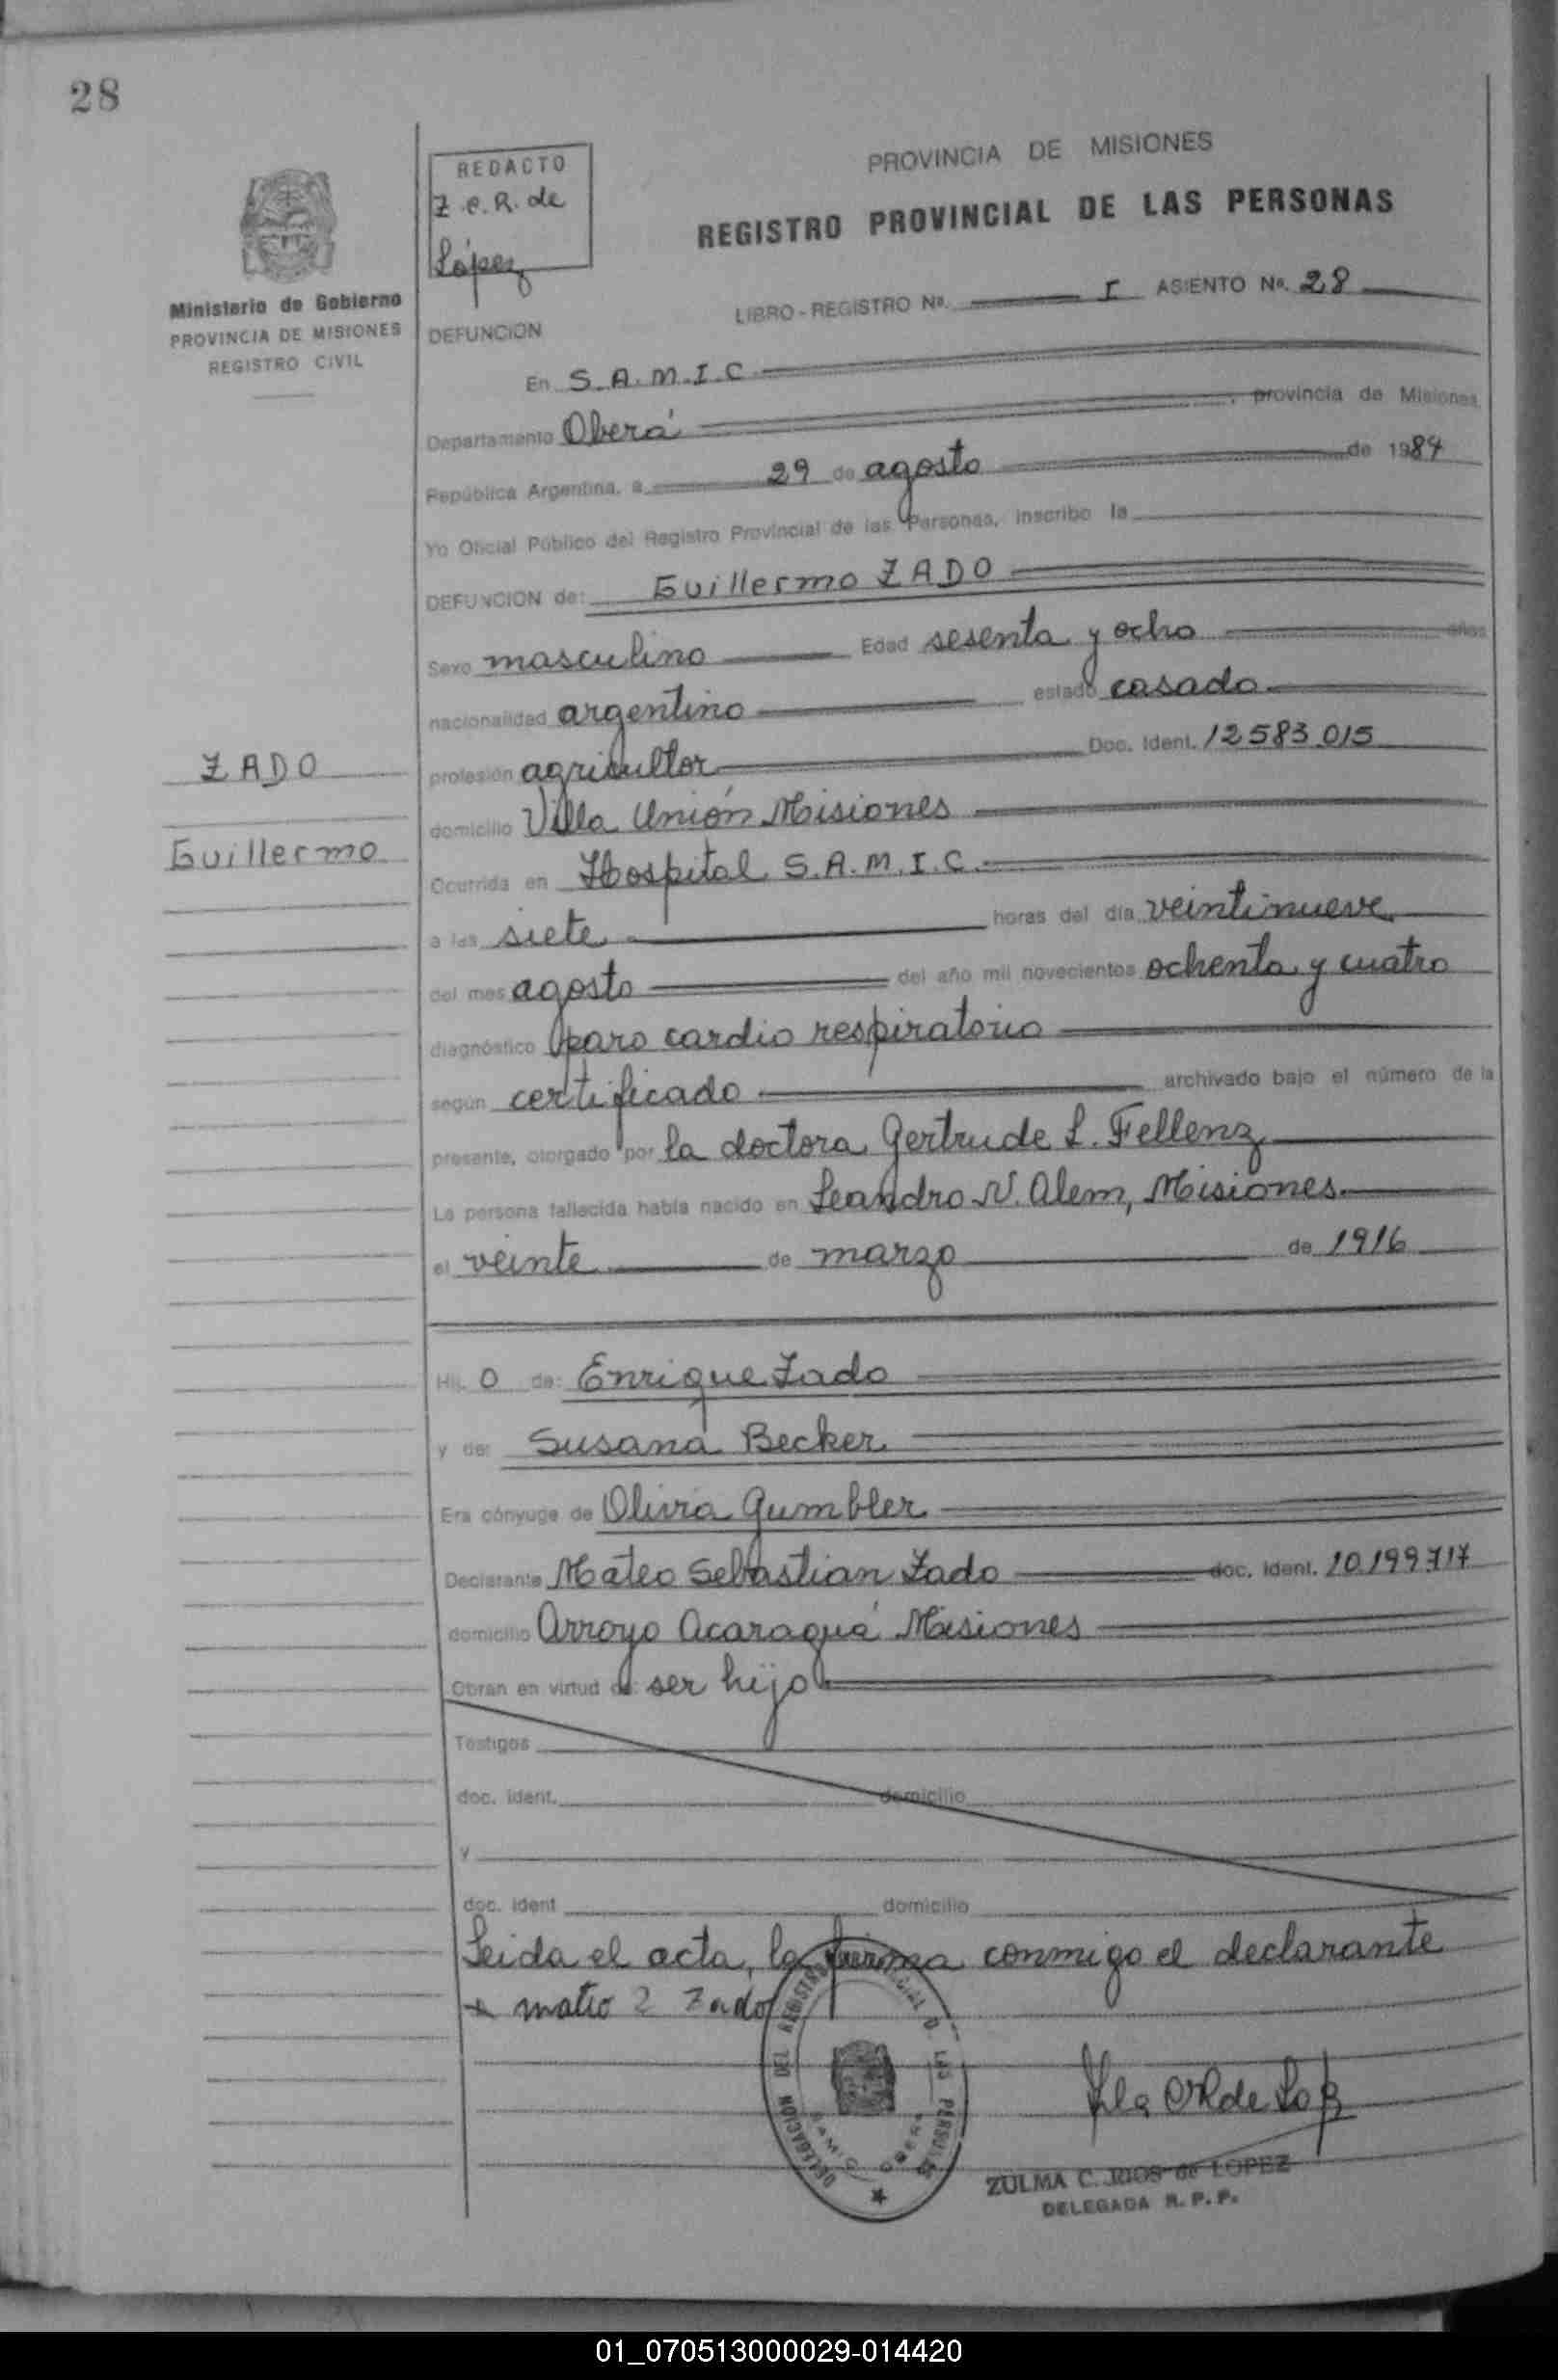 28
REDACTO
Z.C.R. de
López
Ministerio de Gobierno
PROVINCIA DE MISIONES
REGISTRO CIVIL
PROVINCIA DE MISIONES
REGISTRO PROVINCIAL DE LAS PERSONAS
LIBRO - REGISTRO Nº. I ASIENTO Nº. 28
DEFUNCION
En S.A.M.I.C
Departamento Oberá, provincia de Misiones
República Argentina, a 29 de agosto de 1984
Yo Oficial Público del Registro Provincial de las Personas, inscribo la
DEFUNCION de: Guillermo ZADO
Sexo masculino Edad sesenta y ocho años
nacionalidad argentino estado casado
ZADO
Guillermo
profesión agricultor Doc. Ident. 12583.015
domicilio Villa Unión Misiones
Ocurrida en Hospital S.A.M.I.C.
a las siete horas del día veintinueve
del mes agosto del año mil novecientos ochenta y cuatro
diagnóstico paro cardio respiratorio
según certificado archivado bajo el número de la
presente, otorgado por la doctora Gertrude L. Fellenz
La persona fallecida había nacido en Leandro N. Alem, Misiones
el veinte de marzo de 1916
Hij o de: Enrique Zado
y de: Susana Becker
Era cónyuge de Olivia Gumbler
Declarante Mateo Sebastian Zado doc. ident. 10.199.717
domicilio Arroyo Acaraguá Misiones
Obran en virtud de: ser hijo
Testigos
doc. ident. domicilio
y
doc. ident domicilio
Leida el acta, la firma conmigo el declarante
Zado
DELEGACION DEL REGISTRO PROVINCIAL D. LAS PERSONAS
SAMIC OBERA
ZULMA C. RIOS de LOPEZ
DELEGADA R.P.P.
01_070513000029-014420